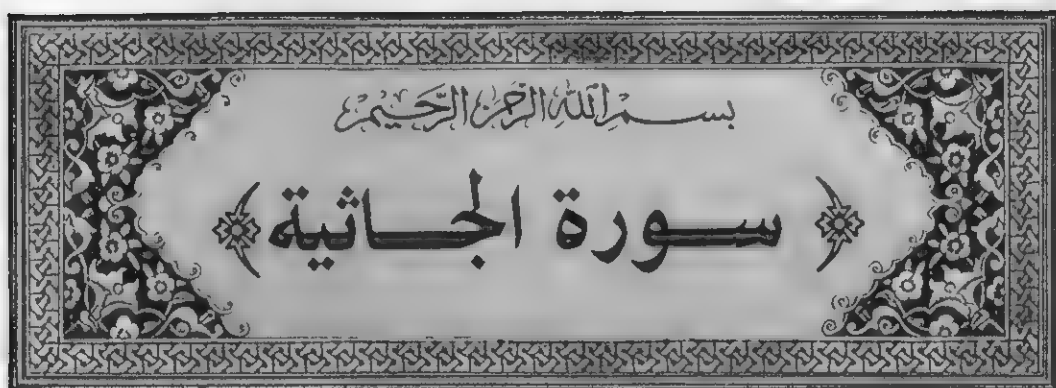 بسم الله الرحمن الرحيم
﴿ سورة الجاثية ﴾